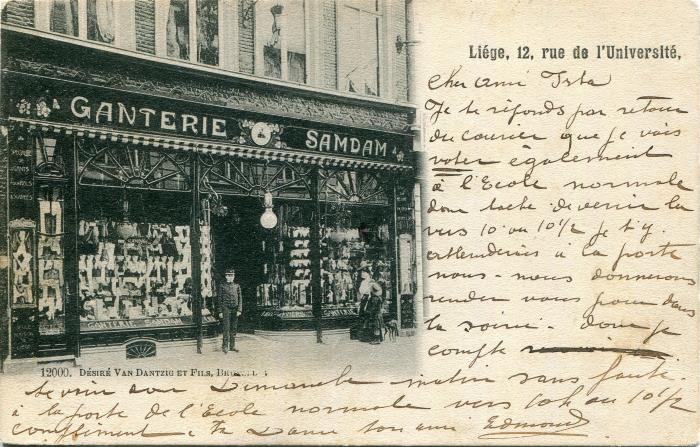 GANTERIE SAMDAM
GANTERIE SAMDAM
12000. DÉSIRÉ VAN DANTZIG ET FILS,
Liége, 12, rue de l'Université,
Cher ami Ista
Je te réponds par retour
du courier que je vais
voter également
à l'Ecole normale
donc tache de venir la
vers 10 ou 10½ je t'y
attenderais à la porte
nous nous donnerons
render vous pour dans
la soiré. donc je
compte
te voir Dimanche matin sans faute
à la porte de l'Ecole normale vers 10h ou 10½
compliment a ta Dame ton ami Edmond